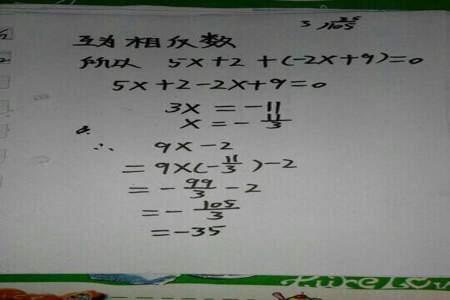 3 √105 35
互为相反数
所以 5x+2+(-2x+9)=0
5x+2-2x+9=0
3x=-11
x=-11/3
∴ 9x-2
=9×(-11/3)-2
=-99/3-2
=-105/3
=-35